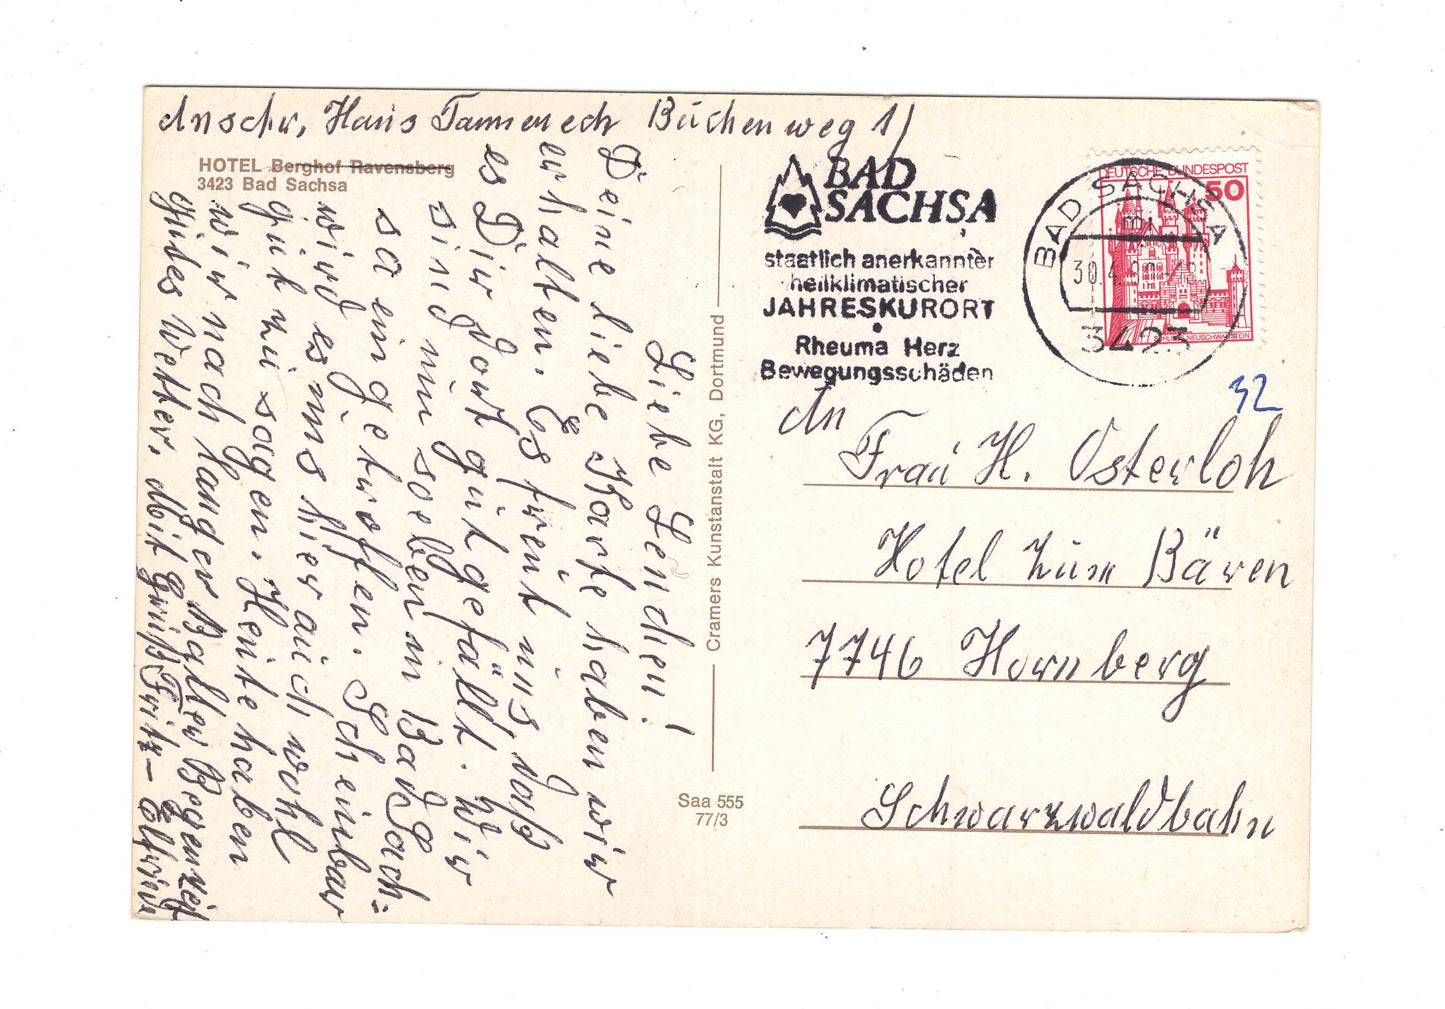 Anschr. Haus Tanneneck Buchenweg 11
HOTEL Berghof Ravensberg
3423 Bad Sachsa
Liebe Lenchen!
Deine liebe Karte haben wir
erhalten. Es freut uns, daß
es Dir dort gut gefällt. Wir
sind nun soeben in Bad Sach=
sa eingetroffen. Scheinbar
wird es uns hier auch wohl
gut zu sagen. Heute haben
wir nach langer kalter Regenzeit
gutes Wetter. Mit Gruß Fritz – Elfriede
Cramers Kunstanstalt KG, Dortmund
Saa 555
77/3
BAD
SACHSA
staatlich anerkannter
heilklimatischer
JAHRESKURORT
Rheuma Herz
Bewegungsschäden
BAD SACHSA
30.4.
3423
DEUTSCHE BUNDESPOST
50
SCHLOSS NEUSCHWANSTEIN
32
An
Frau H. Osterloh
Hotel zum Bären
7746 Hornberg
Schwarzwaldbahn